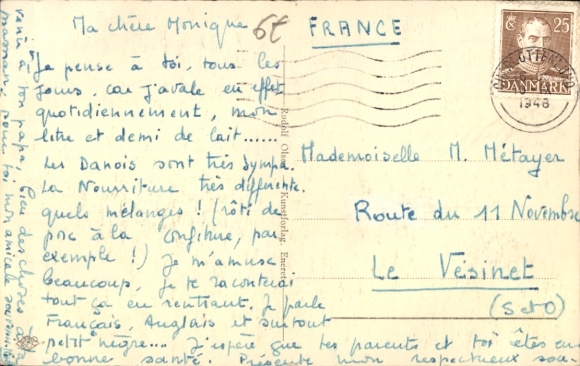 Ma chère Monique
Je pense à toi, tous les
jours, car j'avale en effet
quotidiennement, mon
litre et demi de lait......
Les Danois sont très sympa.
La Nourriture très différente.
quels mélanges ! (rôti de
porc à la confiture, par
exemple !) Je m'amuse
beaucoup, je te raconterai
tout ça en rentrant. Je parle
Français, Anglais et surtout
petit nègre.... J'espère que tes parents et toi êtes en
bonne santé. Présente mon respectueux sou-
venir à ton papa, bien des choses à ta
maman, pour toi mon amicale souvenir
6f
FRANCE
Mademoiselle M. Métayer
Route du 11 Novembre
Le Vésinet
(S et O)
25
DANMARK
1948
Rudolf Olsens Kunstforlag. Eneret